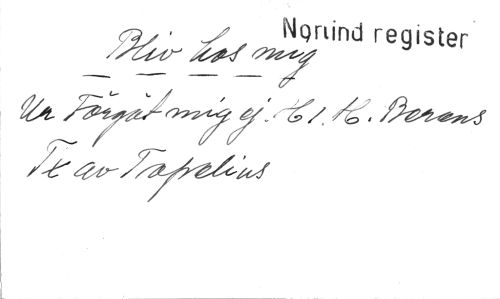 Norlind register
Bliv hos mig
Ur Förgät mig ej. H 1. K. Berens
Tx av Topelius